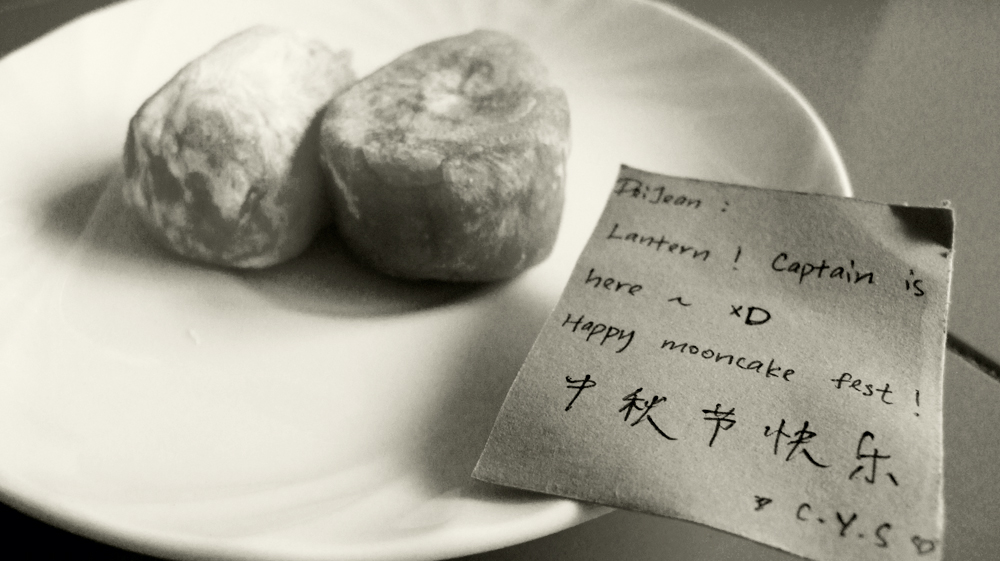 PeiJean :
Lantern ! Captain is
here ~ xD
Happy mooncake fest !
中秋节快乐
♥ C.Y.S ♡